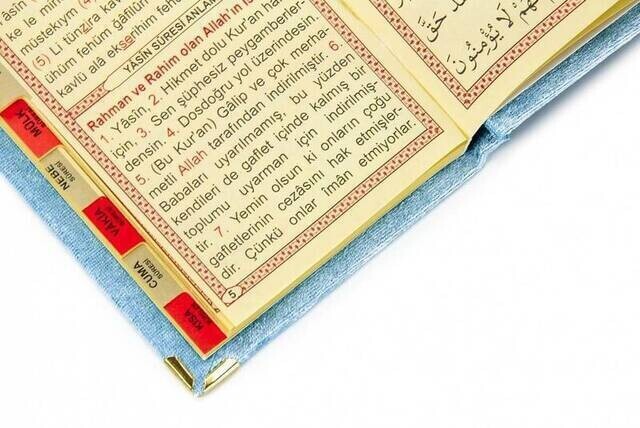 âsîn
müstekıym
(5) Li tünzira kav
ühüm fehüm gâfilûn
kavlü alâ ekserihim fehüm
YÂSİN SÛRESİ ANLAMI
Rahman ve Rahim olan Allah'ın is
1. Yâsîn, 2. Hikmet dolu Kur'an hakkı
için, 3. Sen şüphesiz peygamberler-
densin. 4. Dosdoğru yol üzerindesin.
5. (Bu Kur'an) Gâlip ve çok merha-
metli Allah tarafından indirilmiştir. 6.
Babaları uyarılmamış, bu yüzden
kendileri de gaflet içinde kalmış bir
toplumu uyarman için indirilmiş-
tir. 7. Yemin olsun ki onların çoğu
gafletlerinin cezâsını hak etmişler-
dir. Çünkü onlar îmân etmiyorlar.
5
MÜLK
NEBE
SÛRESİ
VAKIA
CUMA
SÛRESİ
KISA
حَقَّ
لَا يُؤْمِنُونَ